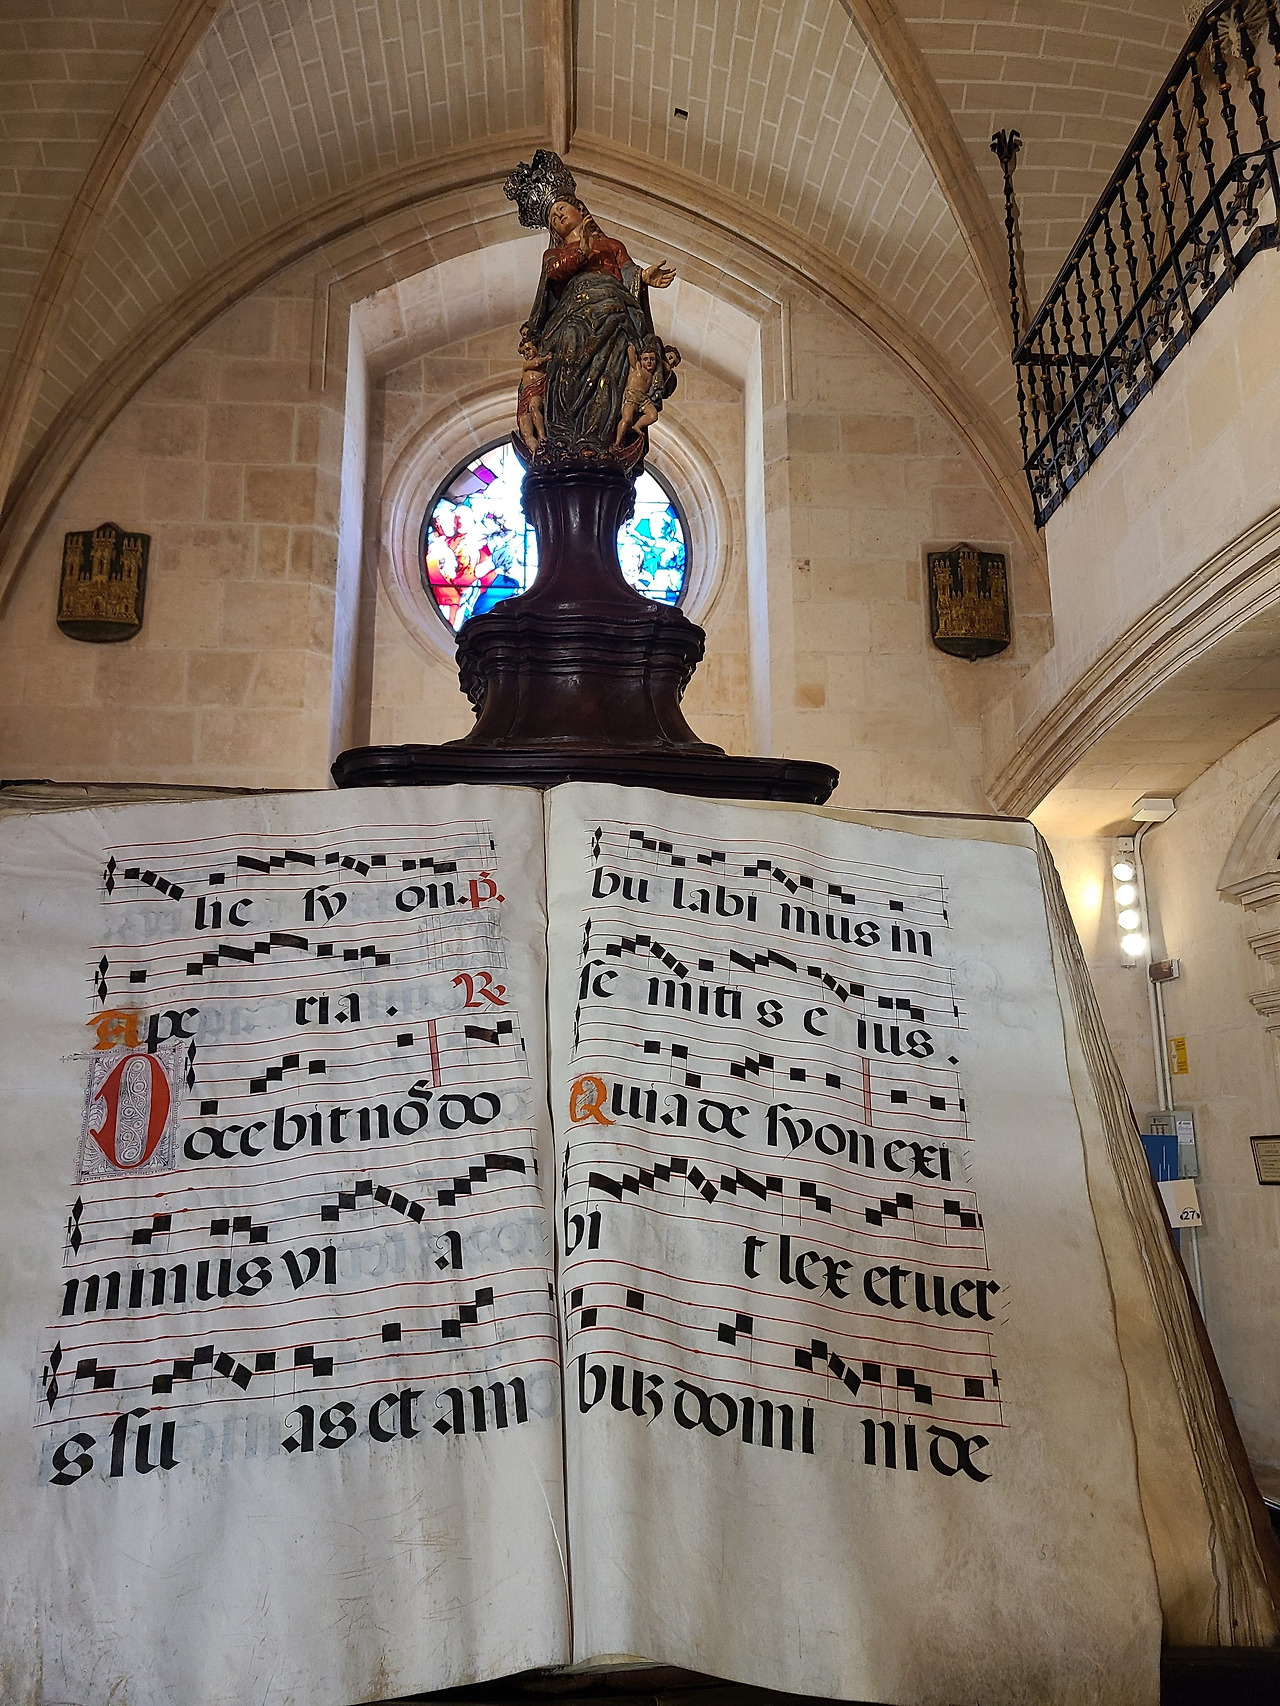 lic sy on. p̃.
Ape ria . R
Docebit nos̃ do
minus vi a
s su as et am
bu labi mus in
se miti s e ius.
Quia de syon exi
bi t lex et ver
buʒ domi ni de
27